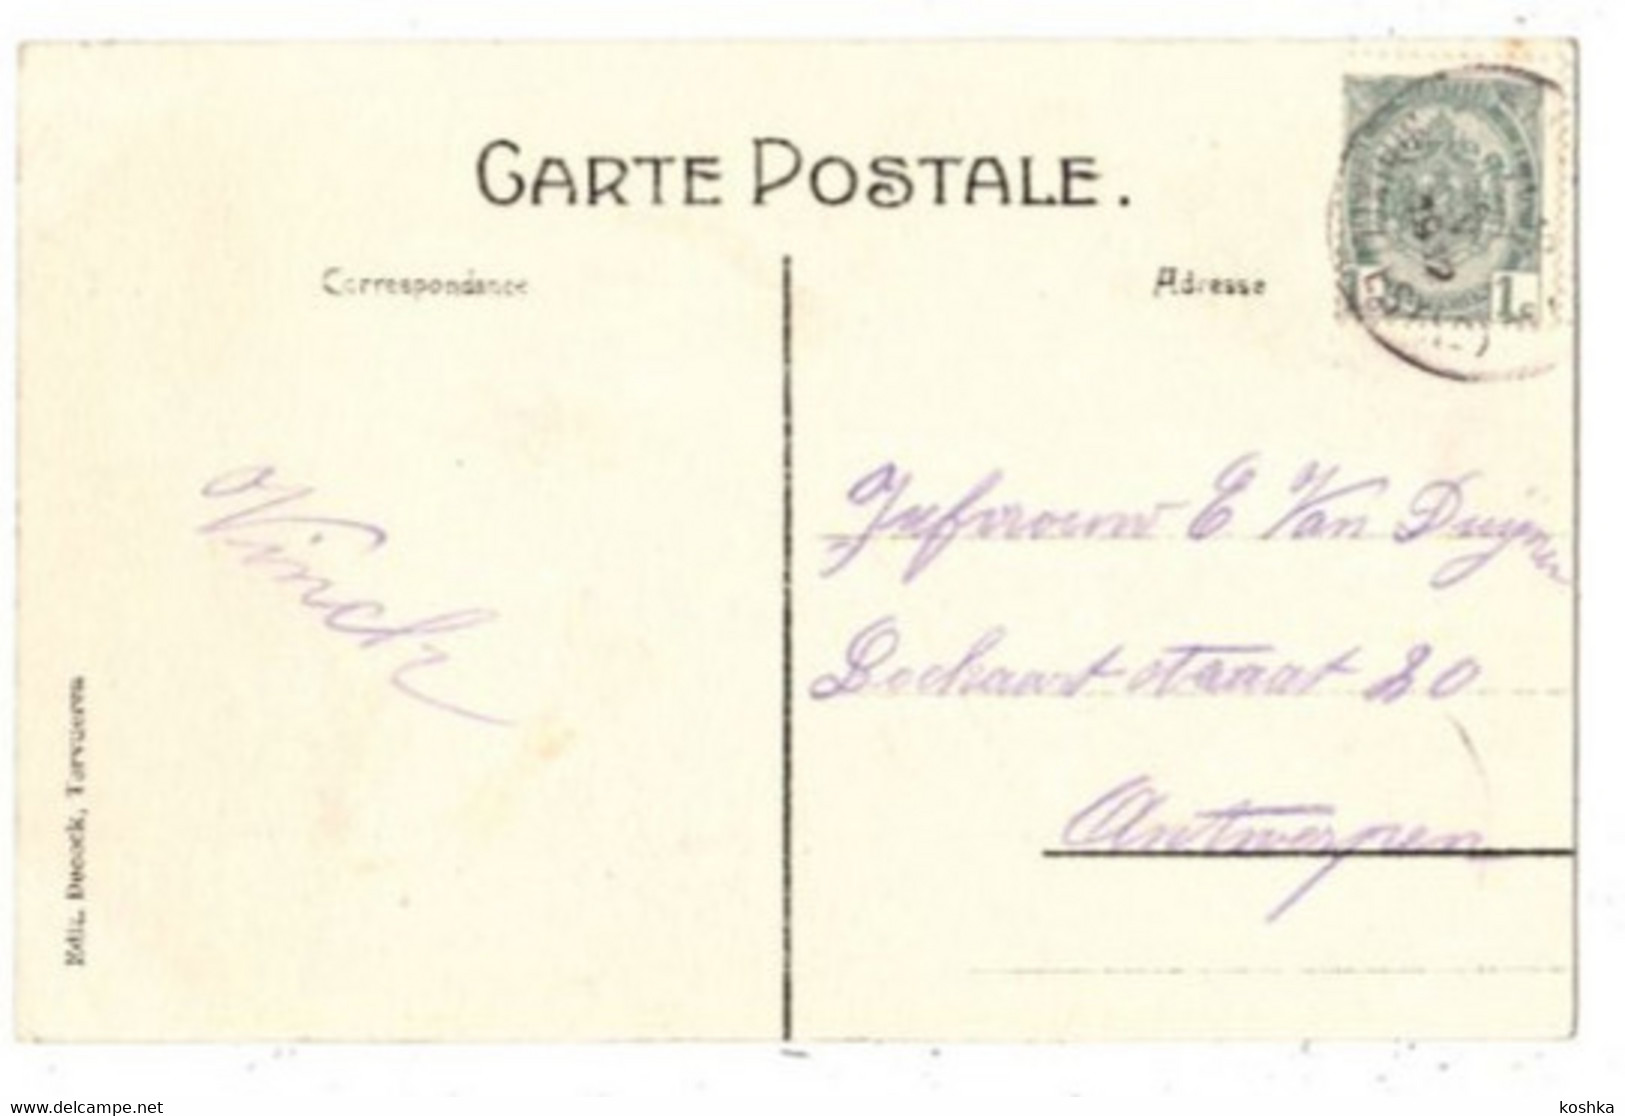 CARTE POSTALE.
Correspondance
Adresse
1c
Vinck
Jufvrouw E Van Duijnen
straat 20
Antwerpen
Edit. Decock, Tervueren
www.delcampe.net
koshka